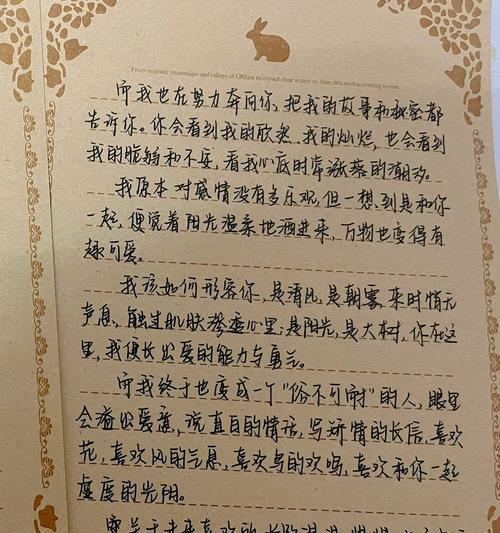 From magnetic mountains and valleys of
to crystal clear waters so blue, this wish is coming to you.
而我也在努力奔向你，把我的故事和秘密都
告诉你。你会看到我的欣然、我的灿烂，也会看到
我的脆弱和不安，看我心底时岸涨落的潮汐。
我原本对感情没有多乐观，但一想到是和你
一起，便觉着阳光温柔地洒进来，万物也变得有
趣可爱。
我该如何形容你，是清风，是朝雾，来时悄无
声息，触过肌肤渗透心里；是阳光，是大树，你在这
里，我便长出爱的能力与勇气。
而我终于也变成一个“俗不可耐”的人，眼里
会溢出爱意，说直白的情话，写矫情的长信，喜欢
花，喜欢风的气息，喜欢鸟的欢鸣，喜欢和你一起
虚度的光阴。
关于未来喜欢的